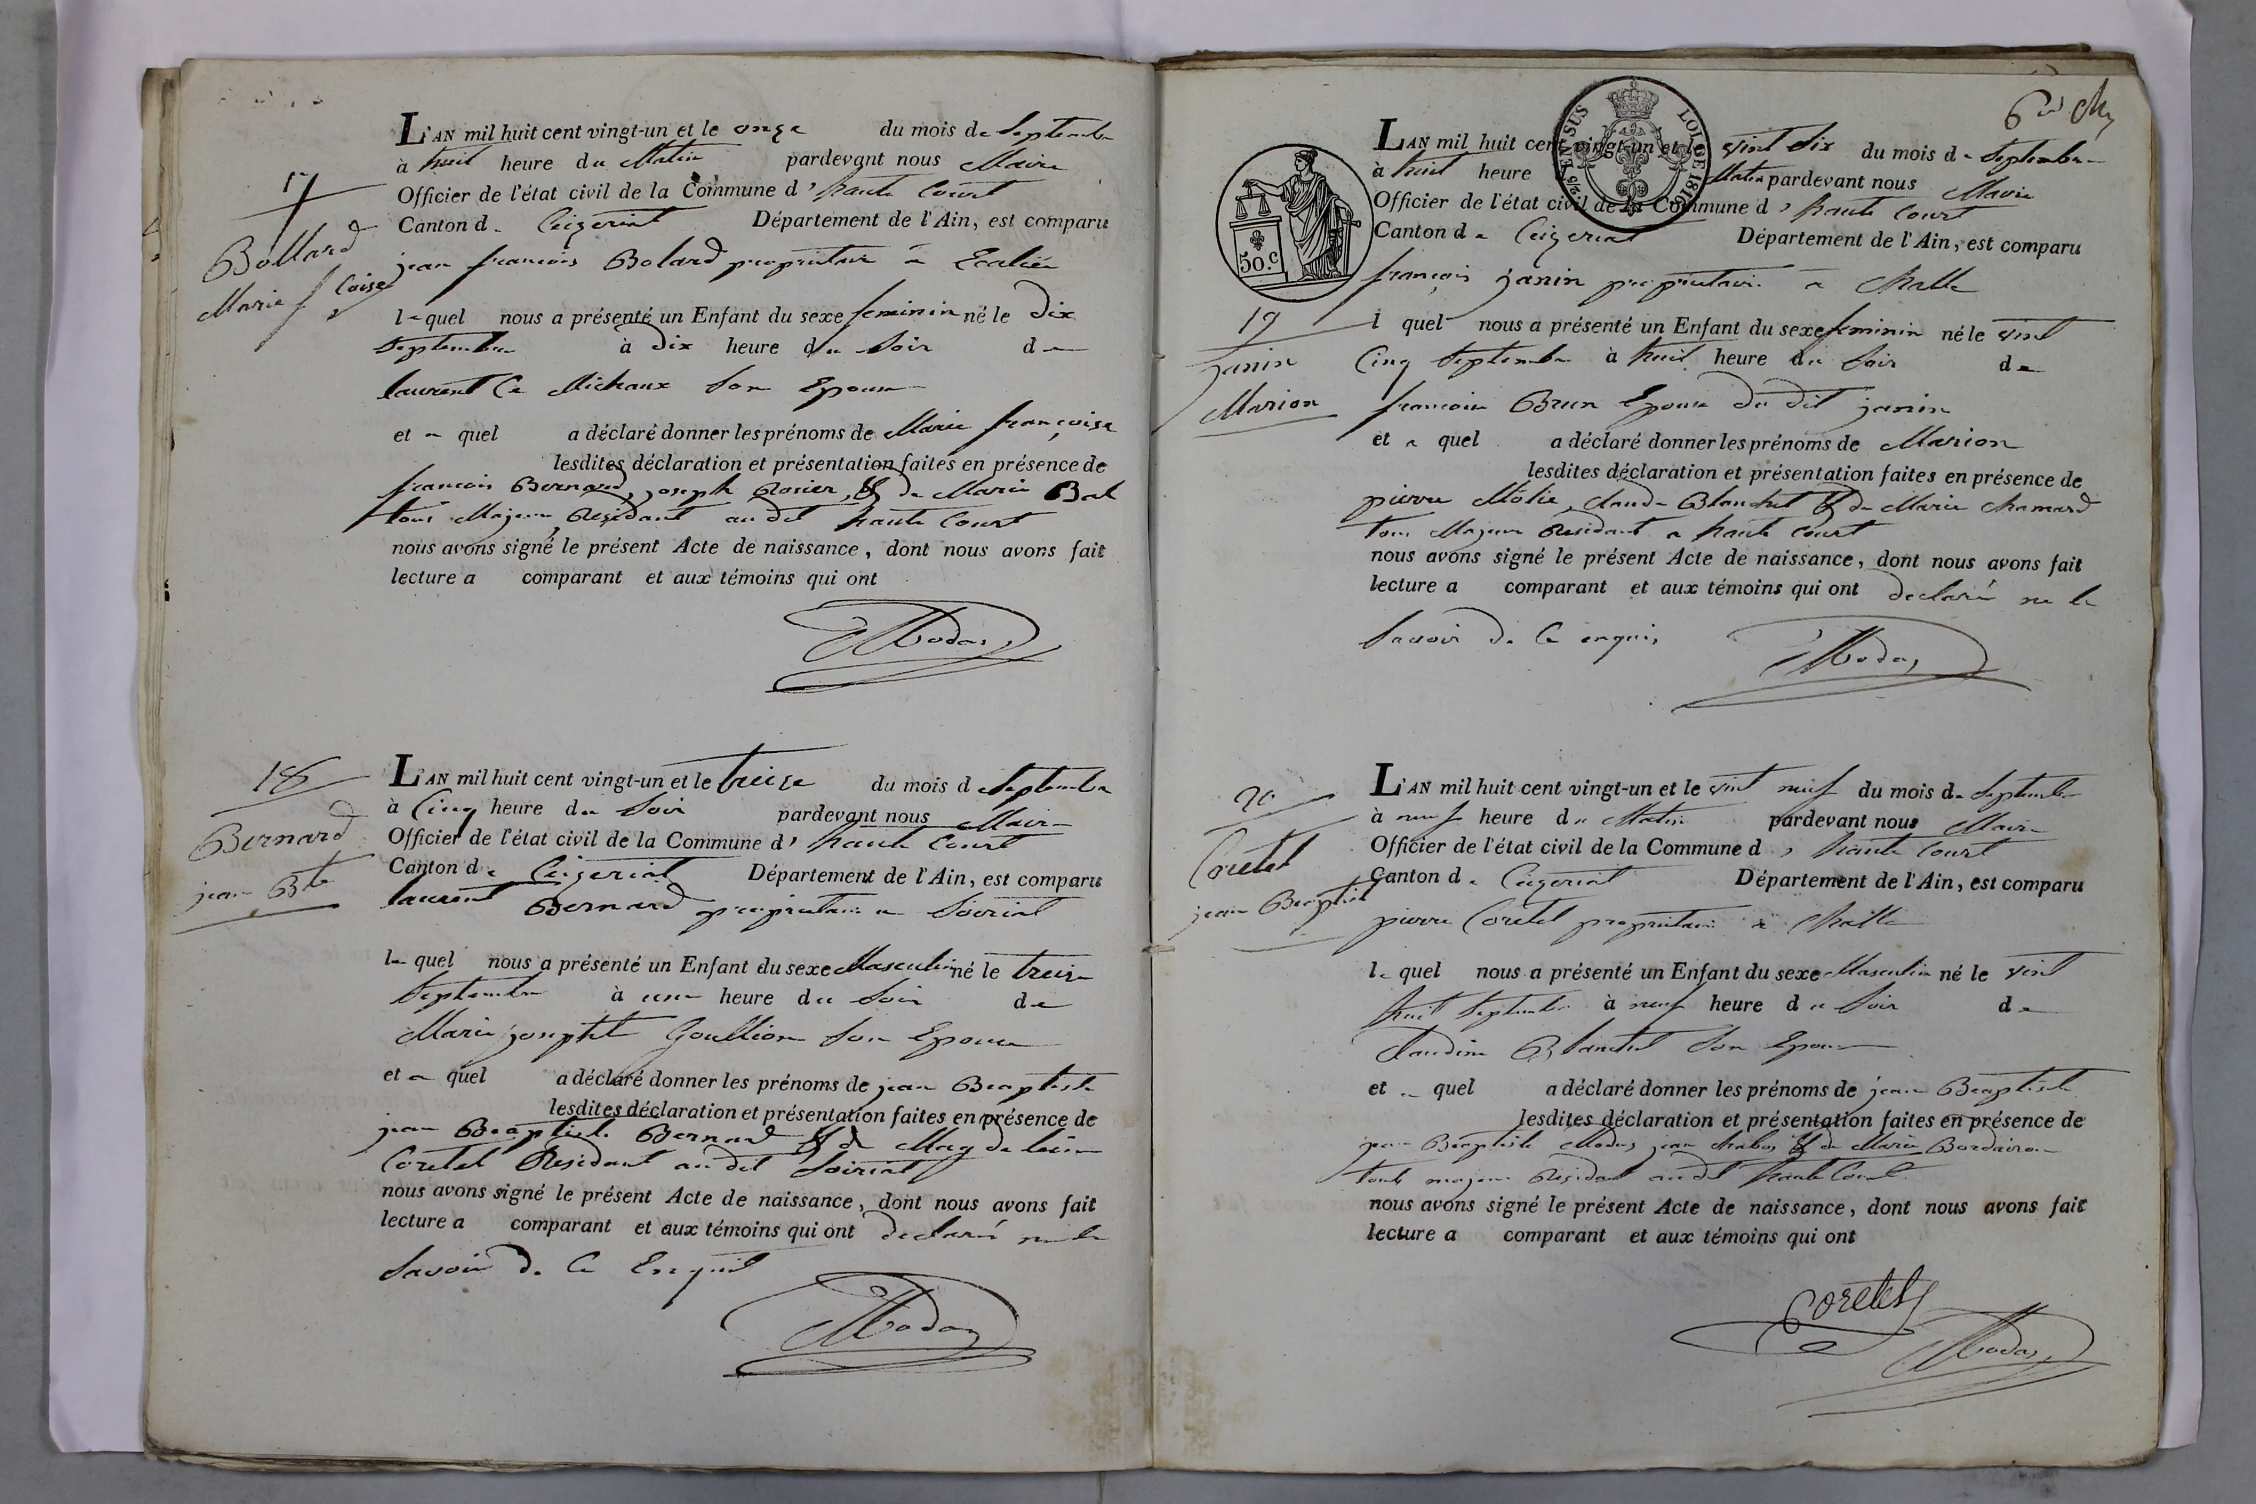 17
Bollard
Marie f.coise
L'AN mil huit cent vingt-un et le onze du mois de Septembre
à huit heure du Matin pardevant nous Maire
Officier de l'état civil de la Commune d'haute Court
Canton de Ceizeriat Département de l'Ain, est comparu
jean francois Bolard propriétaire à
le quel nous a présenté un Enfant du sexe feminin né le dix
Septembre à dix heure du Soir de
laurent Ce Michaux Son Epouse
et a quel a déclaré donner les prénoms de Marie françoise
lesdites déclaration et présentation faites en présence de
francois Bernard, joseph Rosier, & de Marie Bal
tous Majeur Residant au dit haute Court
nous avons signé le présent Acte de naissance, dont nous avons fait
lecture a comparant et aux témoins qui ont
Modas
18
Bernard
jean Bte
L'AN mil huit cent vingt-un et le treize du mois de Septembre
à Cinq heure du Soir pardevant nous Maire
Officier de l'état civil de la Commune d'haute Court
Canton de Ceizeriat Département de l'Ain, est comparu
laurent Bernard propriétaire a Soiriat
le quel nous a présenté un Enfant du sexe Masculin né le treize
Septembre à une heure du Soir de
Marie josepht Goullion Son Epouse
et a quel a déclaré donner les prénoms de jean Beaptiste
lesdites déclaration et présentation faites en présence de
jean Beaptiste Bernard & de Magdeleine
Coretet Residant au dit Soiriat
nous avons signé le présent Acte de naissance, dont nous avons fait
lecture a comparant et aux témoins qui ont declaré ne le
Savoir de Ce Enquit
Modas
6
50.c
LOI DE 1816
19
janin
Marion
L'AN mil huit cent vingt-un et le vint Six du mois de Septembre
à huit heure Matin pardevant nous Maire
Officier de l'état civil de la Commune d'haute Court
Canton de Ceizeriat Département de l'Ain, est comparu
françois janin propriétaire a Challe
l quel nous a présenté un Enfant du sexe feminin né le vint
Cinq Septembre à huit heure du Soir de
francoise Brun Epouse du dit janin
et a quel a déclaré donner les prénoms de Marion
lesdites déclaration et présentation faites en présence de
pierre Molie, Claude Blanchet & de Marie Chamard
tous Majeur Residant a haute Court
nous avons signé le présent Acte de naissance, dont nous avons fait
lecture a comparant et aux témoins qui ont declaré ne le
Savoir de Ce enquis
Modas
20
Coretet
jean Beaptist
L'AN mil huit cent vingt-un et le vint neuf du mois de Septembre
à neuf heure du Matin pardevant nous Maire
Officier de l'état civil de la Commune d'haute Court
Canton de Ceizeriat Département de l'Ain, est comparu
pierre Coretet propriétaire à Challe
le quel nous a présenté un Enfant du sexe Masculin né le vint
huit Septembre à neuf heure du Soir de
Claudine Blanchet Son Epouse
et a quel a déclaré donner les prénoms de jean Beaptiste
lesdites déclaration et présentation faites en présence de
jean Beaptiste Modas, jean & de Marie
tous majeur Residant au dit haute Court
nous avons signé le présent Acte de naissance, dont nous avons fait
lecture a comparant et aux témoins qui ont
Coretet
Modas